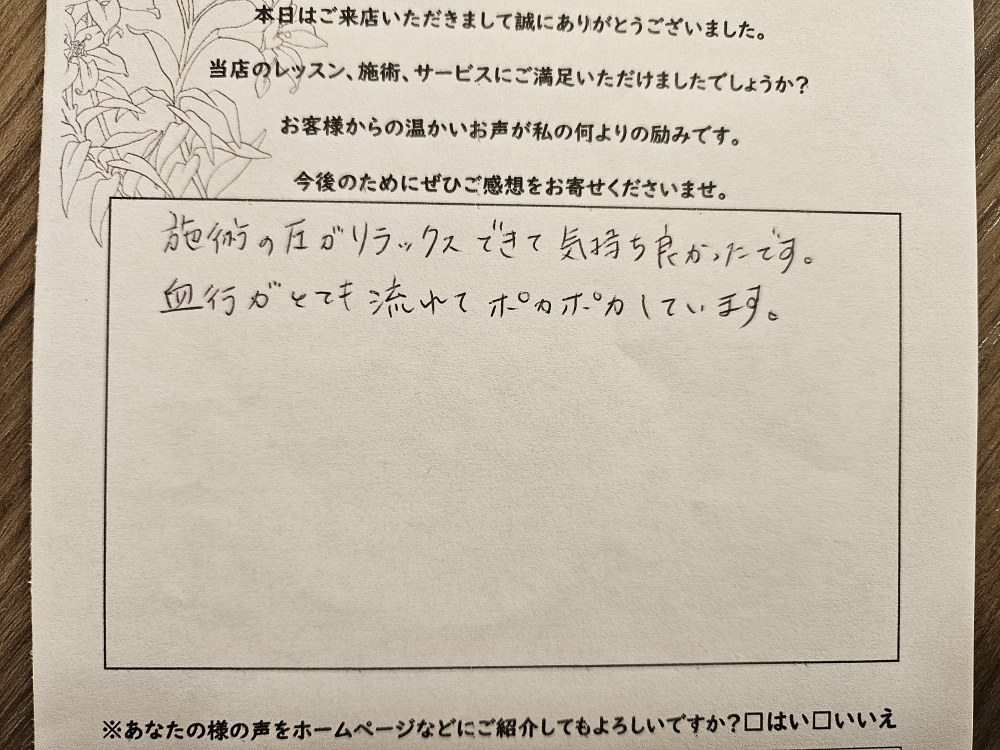 本日はご来店いただきまして誠にありがとうございました。
当店のレッスン、施術、サービスにご満足いただけましたでしょうか?
お客様からの温かいお声が私の何よりの励みです。
今後のためにぜひご感想をお寄せくださいませ。
施術の圧がリラックスできて気持ち良かったです。
血行がとても流れてポカポカしています。
※あなたの様の声をホームページなどにご紹介してもよろしいですか?□はい□いいえ